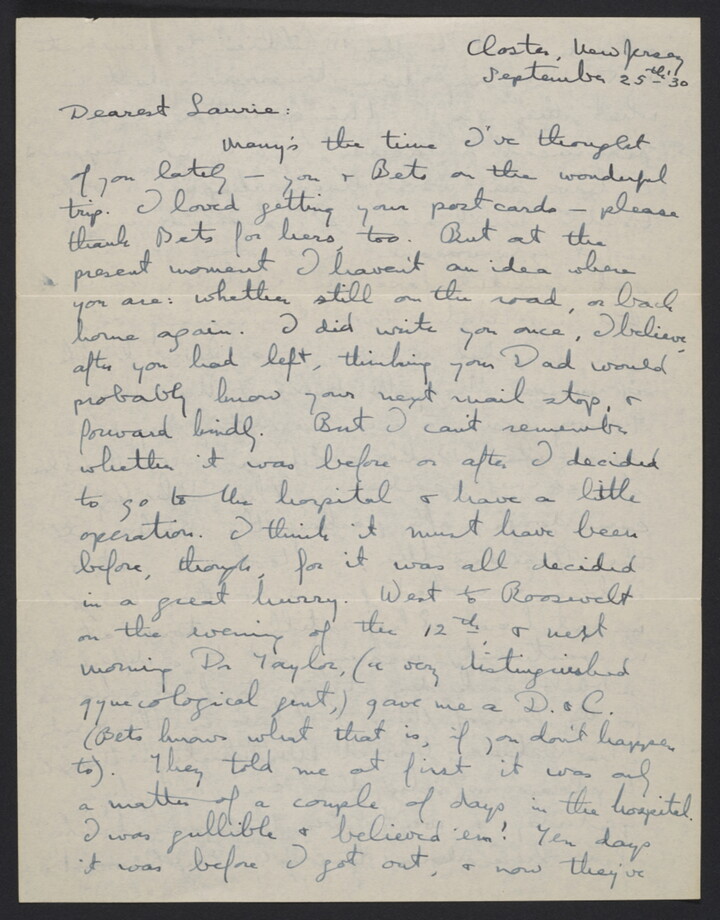 Closter, New Jersey
September 25th '30
Dearest Laurie:
Many's the time I've thought
of you lately — you & Bets on the wonderful
trip. I loved getting your postcards — please
thank Bets for hers, too. But at the
present moment I haven't an idea where
you are: whether still on the road, or back
home again. I did write you once, I believe,
after you had left, thinking your Dad would
probably know your next mail stop, &
forward kindly. But I can't remember
whether it was before or after I decided
to go to the hospital & have a little
operation. I think it must have been
before, though, for it was all decided
in a great hurry. Went to Roosevelt
on the evening of the 12th, & next
morning Dr Taylor, (a very distinguished
gynecological gent,) gave me a D. & C.
(Bets knows what that is, if you don't happen
to). They told me at first it was only
a matter of a couple of days in the hospital.
I was gullible & believed 'em! Ten days
it was before I got out, & now they've